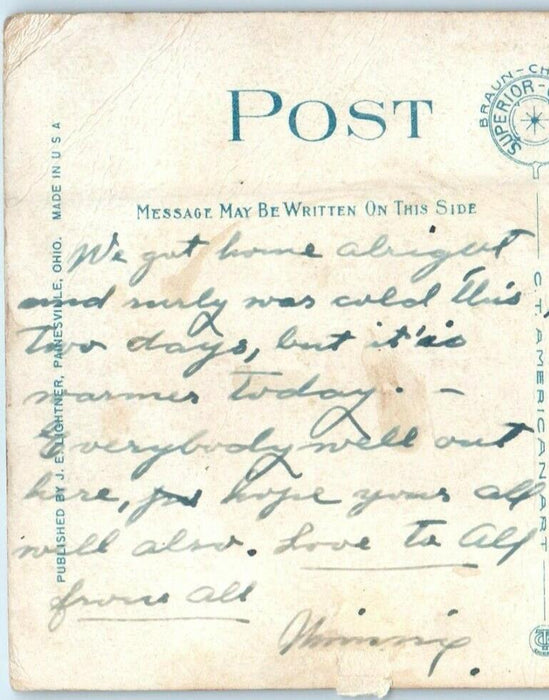 POST
BRAUN-CH
SUPERIOR-
MESSAGE MAY BE WRITTEN ON THIS SIDE
PUBLISHED BY J. E. LIGHTNER, PAINESVILLE, OHIO. MADE IN U S A
C. T. AMERICAN ART
We got home alright
and surly was cold this
two days, but it is
warmer today. —
Everybody well out
here, hope yous all
well also. Love to All
from all
Minnie.